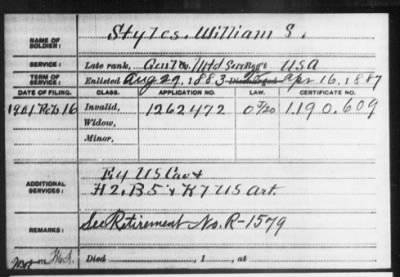 NAME OF SOLDIER: Styles, William S.
SERVICE: Late rank, USA
TERM OF SERVICE: Enlisted Aug 29, 1883 Discharged Apr 16, 1887
DATE OF FILING. CLASS. APPLICATION NO. LAW. CERTIFICATE NO.
1901 Feb 16 Invalid, 1262472 1.190.609
Widow,
Minor,
ADDITIONAL SERVICES: E 4 US Cav &
H 2, B 5 & K 7 US Art.
REMARKS: See Retirement No. R-1579
Died , 1 , at